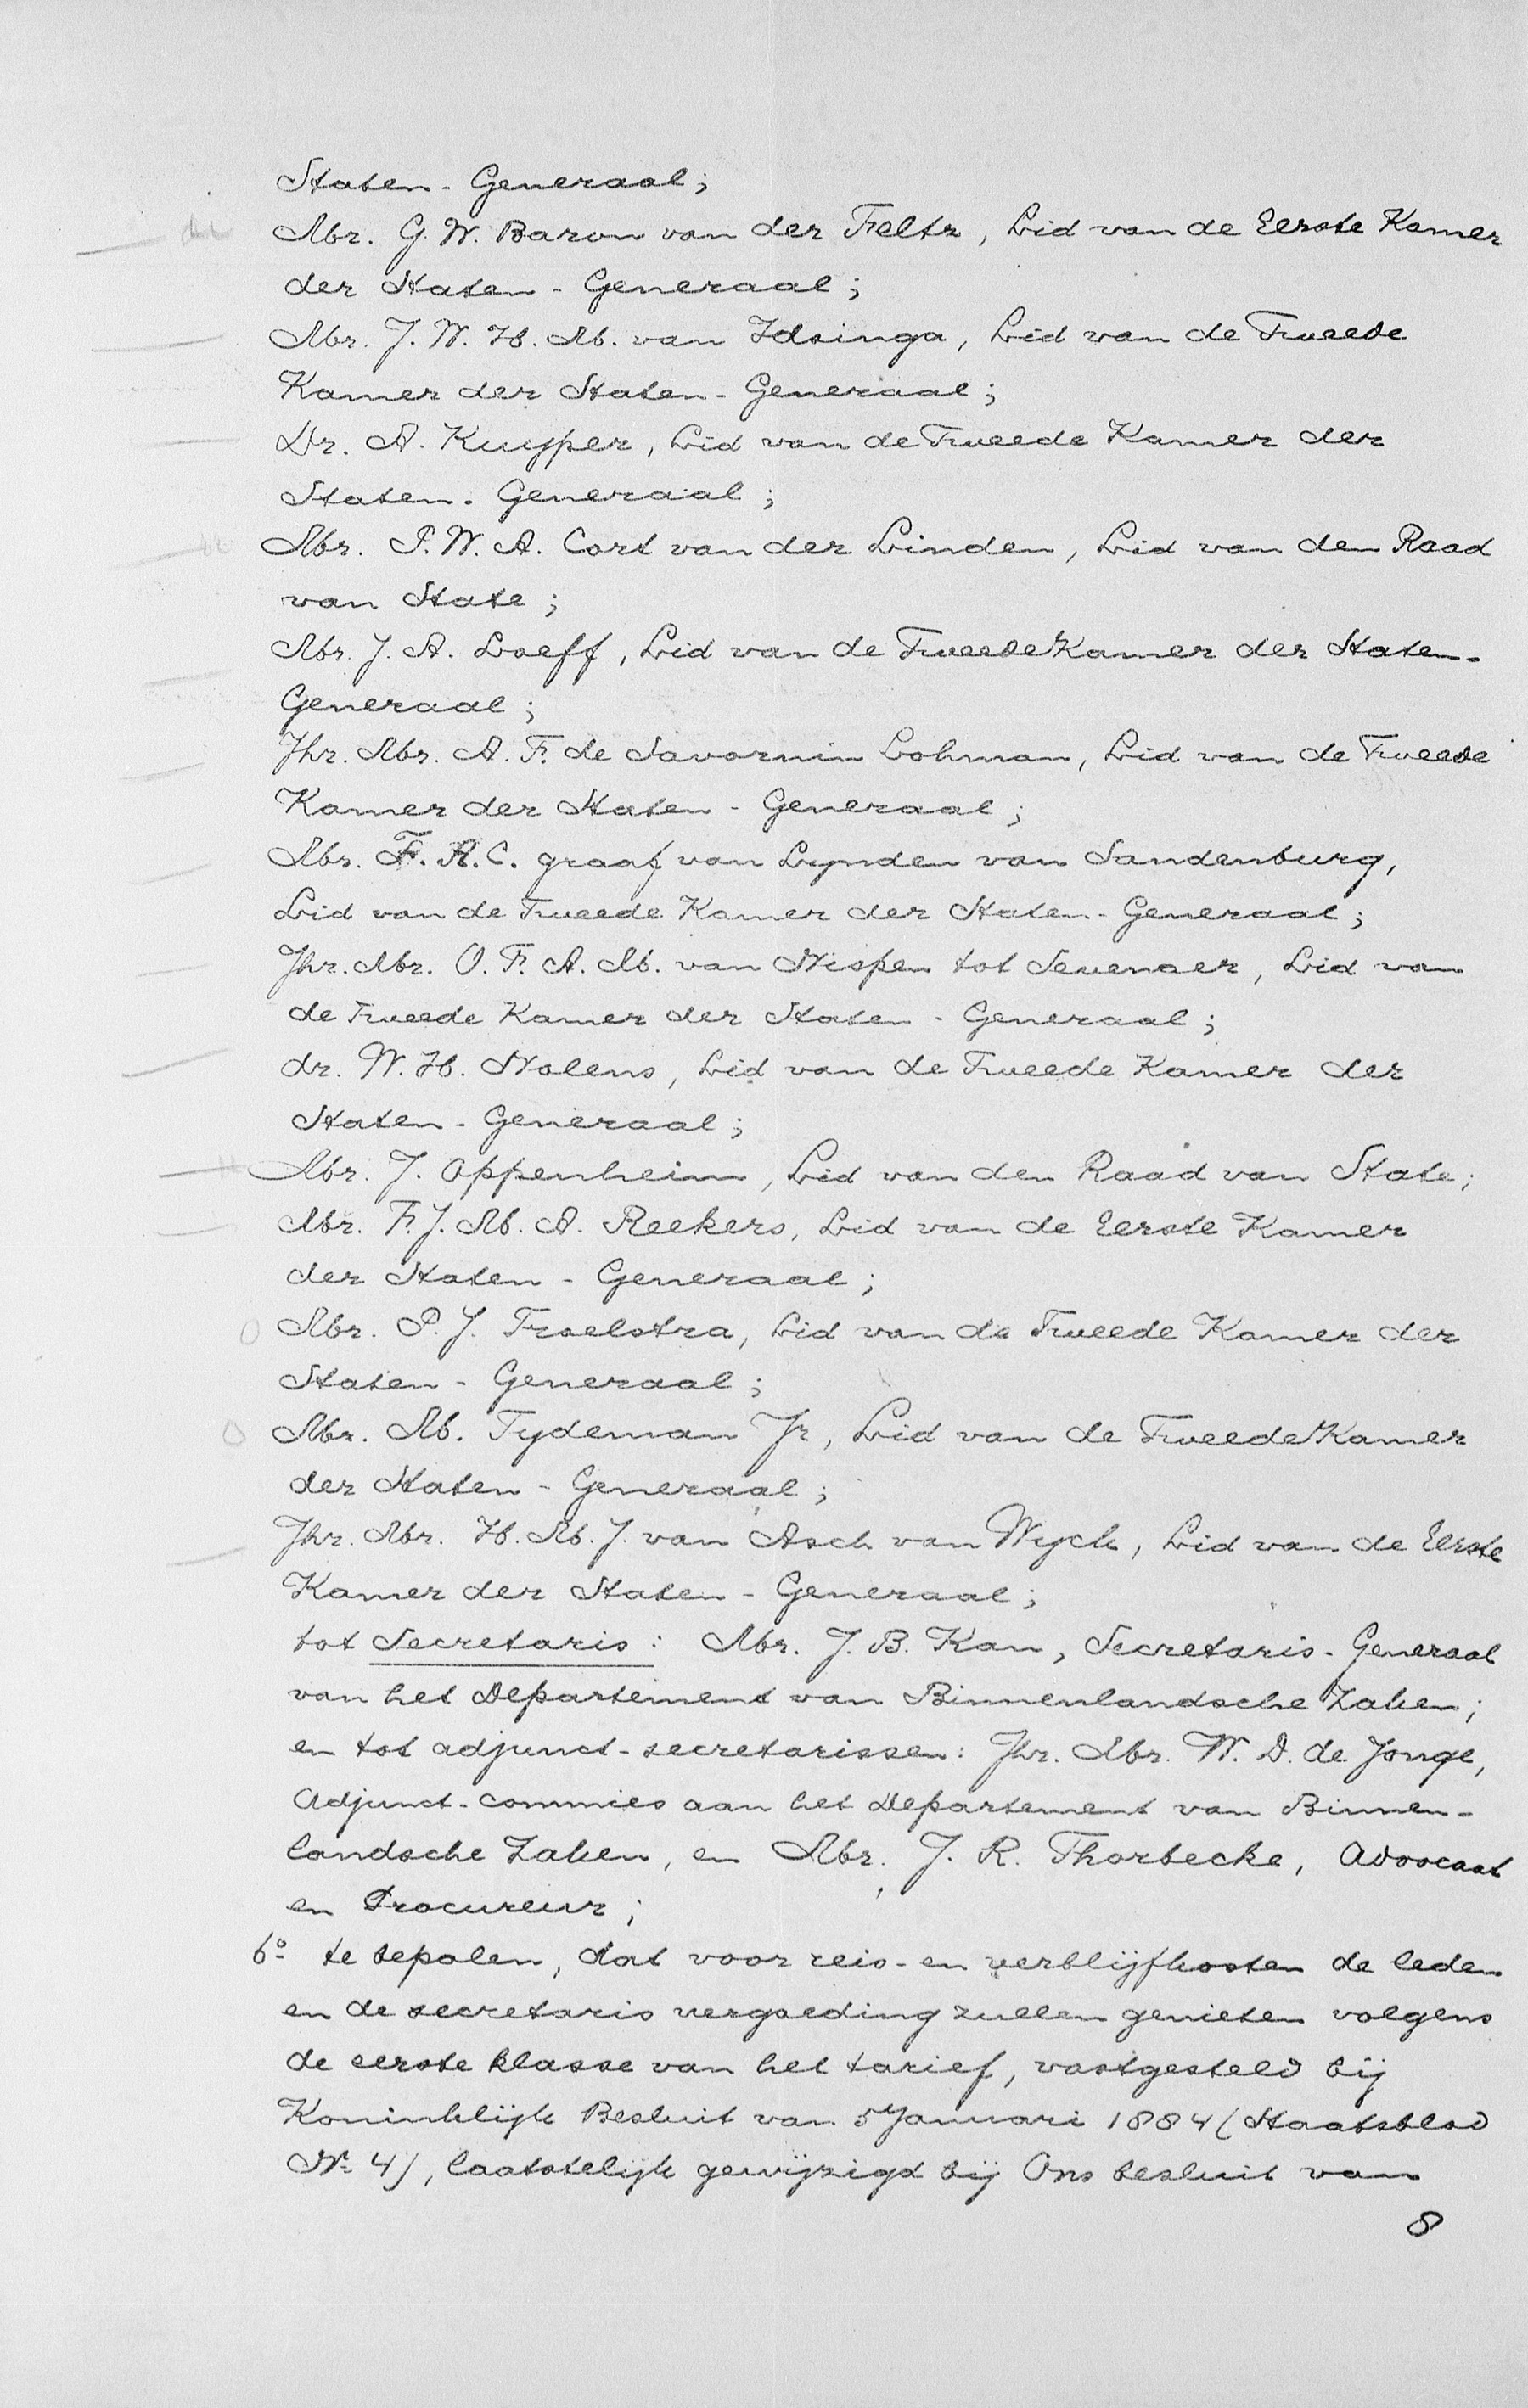 Staten-Generaal;
Mr. G. W. Baron van der Feltz, Lid van de Eerste Kamer
der Staten-Generaal;
Mr. J. W. H. M. van Idsinga, Lid van de Tweede
Kamer der Staten-Generaal;
Dr. A. Kuyper, Lid van de Tweede Kamer der
Staten-Generaal;
Mr. P. W. A. Cort van der Linden, Lid van den Raad
van State;
Mr. J. A. Loeff, Lid van de Tweede Kamer der Staten-
Generaal;
Jhr. Mr. A. F. de Savornin Lohman, Lid van de Tweede
Kamer der Staten-Generaal;
Mr. F. A. C. graaf van Lynden van Sandenburg,
Lid van de Tweede Kamer der Staten-Generaal;
Jhr. Mr. O. F. A. M. van Nispen tot Sevenaer, Lid van
de Tweede Kamer der Staten-Generaal;
dr. W. H. Nolens, Lid van de Tweede Kamer der
Staten-Generaal;
Mr. J. Oppenheim, Lid van den Raad van State;
Mr. F. J. M. A. Reekers, Lid van de Eerste Kamer
der Staten-Generaal;
Mr. P. J. Troelstra, Lid van de Tweede Kamer der
Staten-Generaal;
Mr. M. Tydeman Jr, Lid van de Tweede Kamer
der Staten-Generaal;
Jhr. Mr. H. M. J. van Asch van Wyck, Lid van de Eerste
Kamer der Staten-Generaal;
tot Secretaris: Mr. J. B. Kan, Secretaris-Generaal
van het Departement van Binnenlandsche Zaken;
en tot adjunct-secretarissen: Jhr. Mr. W. D. de Jonge,
Adjunct-commies aan het Departement van Binnen-
landsche Zaken, en Mr. J. R. Thorbecke, Advocaat
en Procureur;
6º te bepalen, dat voor reis- en verblijfkosten de leden
en de secretaris vergoeding zullen genieten volgens
de eerste klasse van het tarief, vastgesteld bij
Koninklijk Besluit van 5 Januari 1884 (Staatsblad
Nº 4), laatstelijk gewijzigd bij Ons besluit van
8